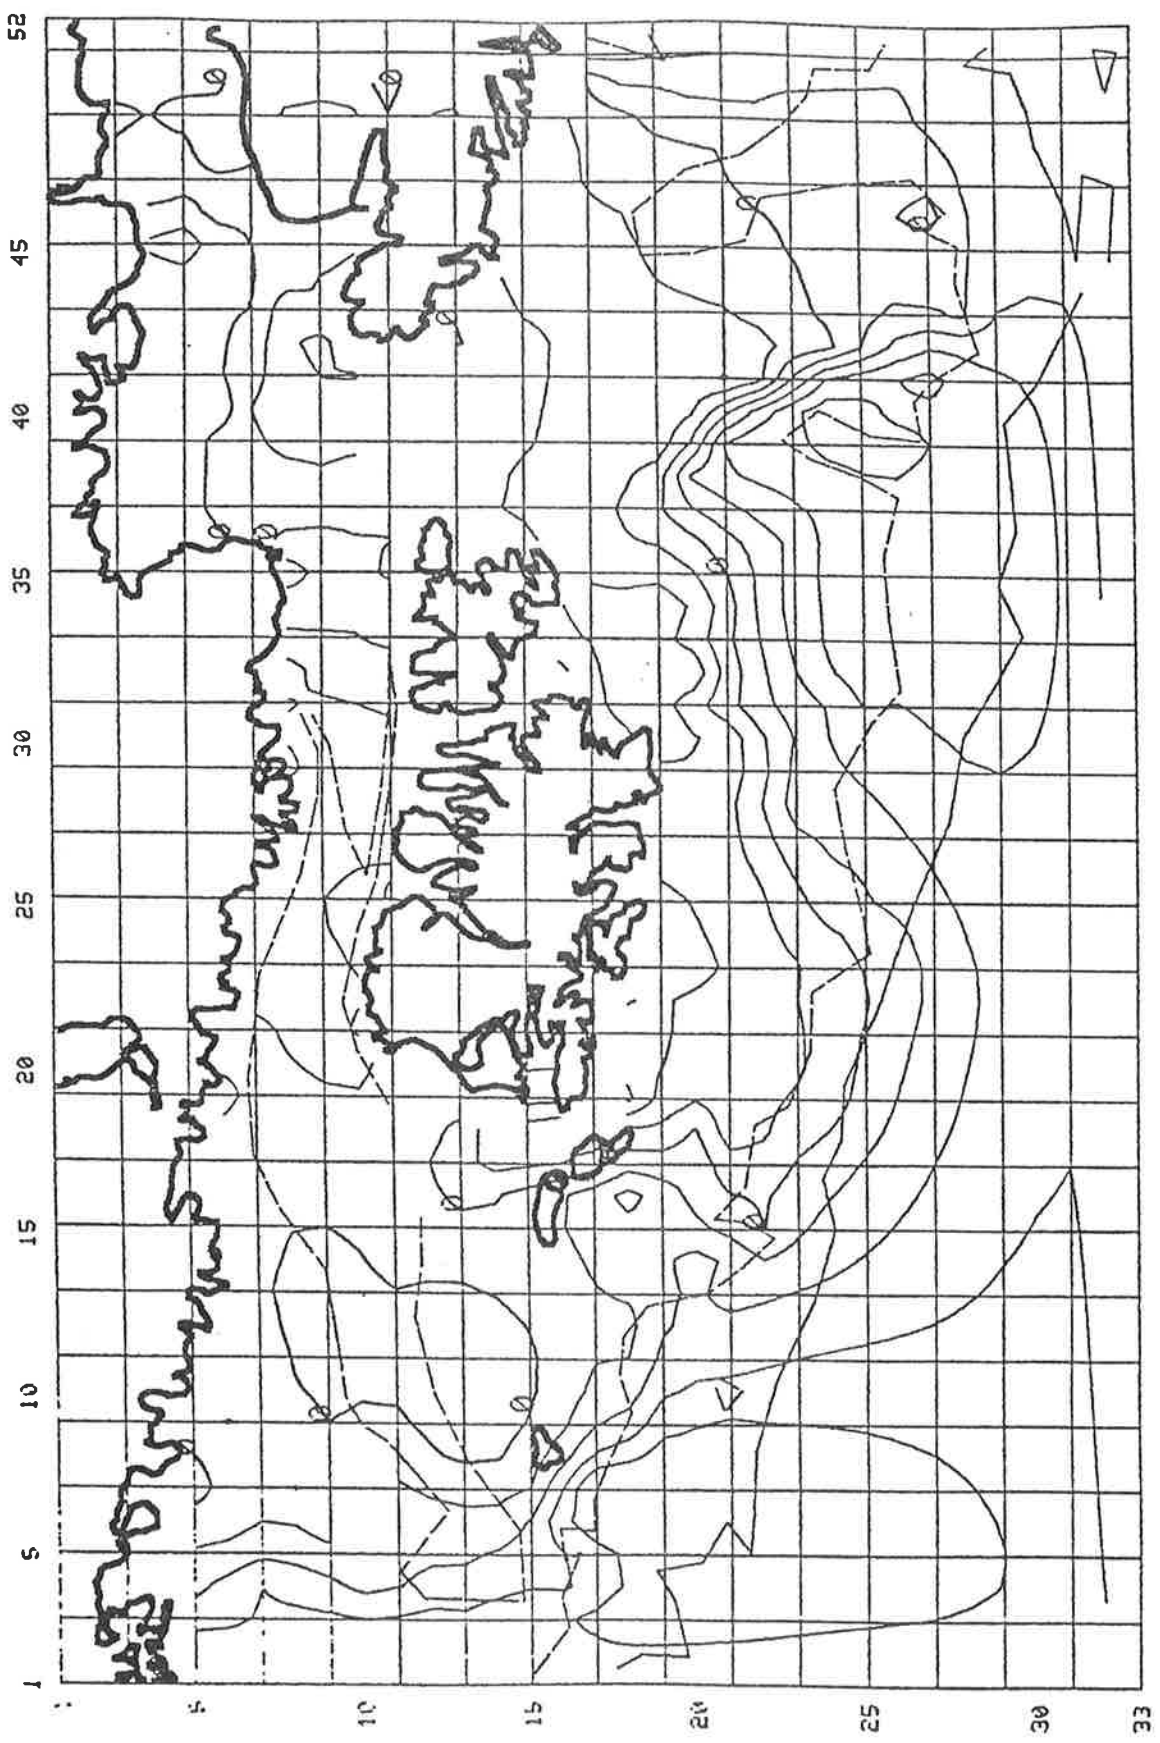 1 5 10 15 20 25 30 35 40 45 52
5
10
15
20
25
30
33